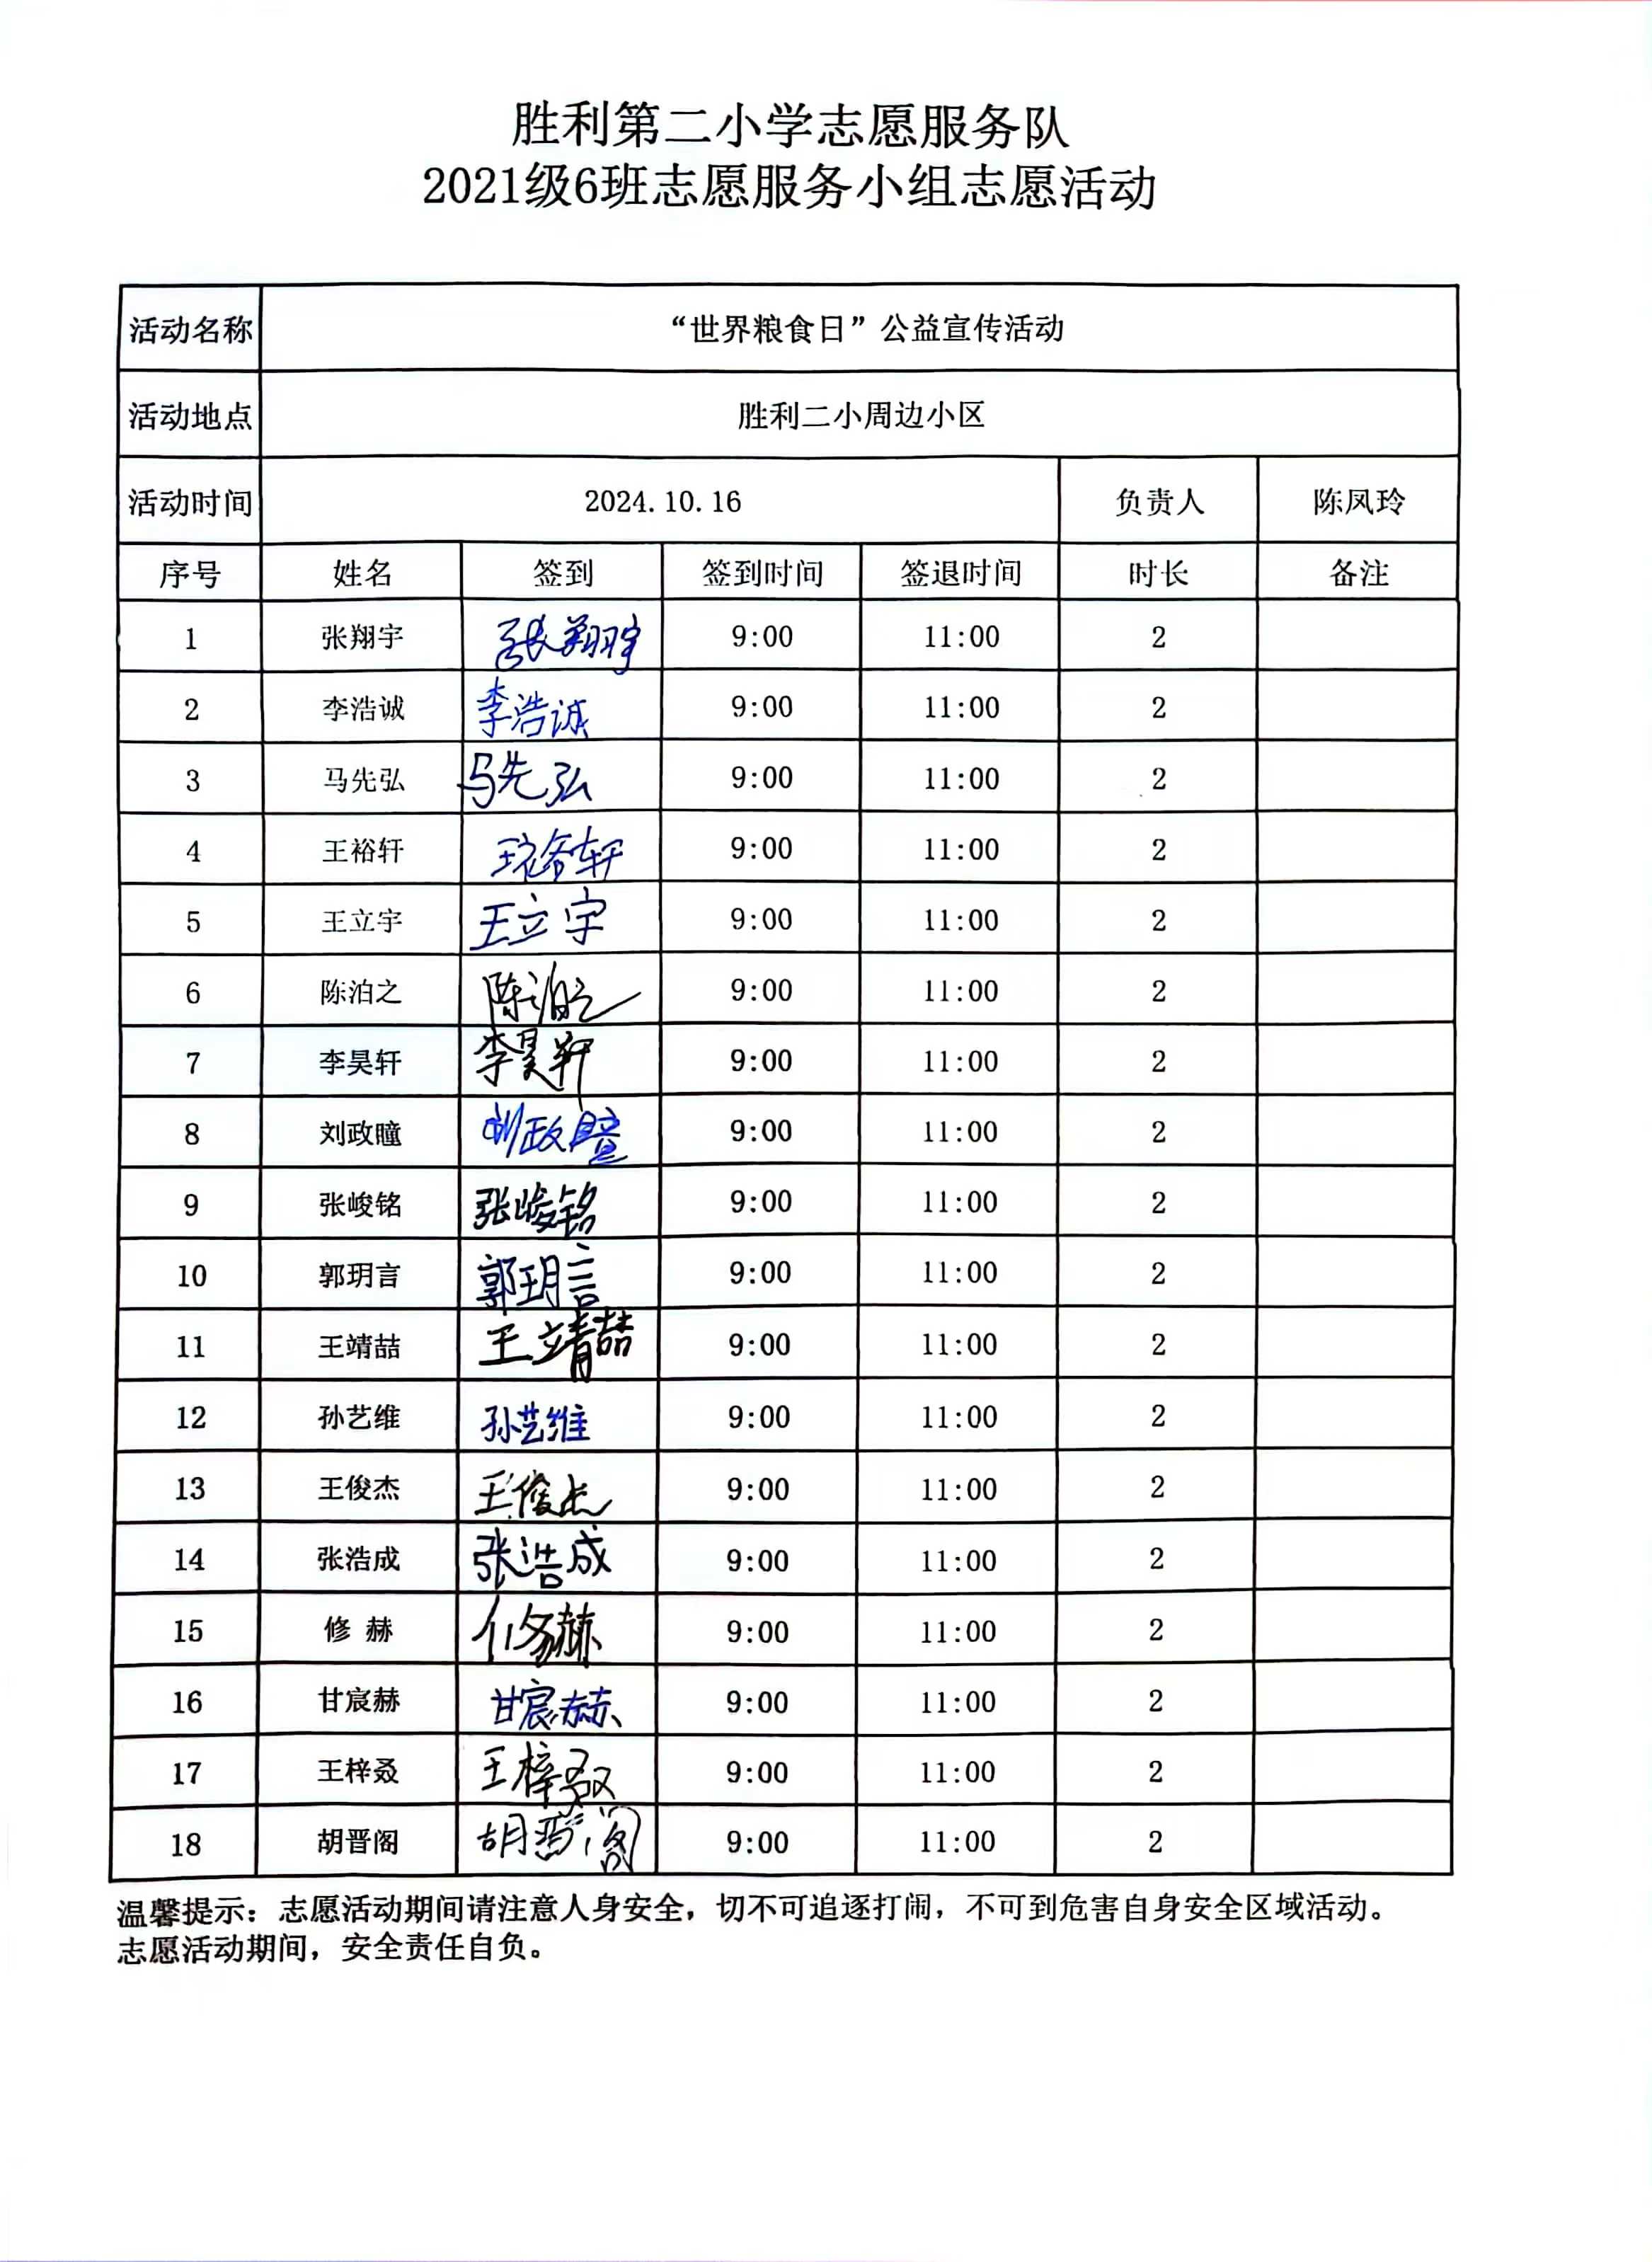 胜利第二小学志愿服务队
2021级6班志愿服务小组志愿活动
活动名称 “世界粮食日”公益宣传活动
活动地点 胜利二小周边小区
活动时间 2024.10.16 负责人 陈凤玲
序号 姓名 签到 签到时间 签退时间 时长 备注
1 张翔宇 张翔宇 9:00 11:00 2
2 李浩诚 李浩诚 9:00 11:00 2
3 马先弘 马先弘 9:00 11:00 2
4 王裕轩 王裕轩 9:00 11:00 2
5 王立宇 王立宇 9:00 11:00 2
6 陈泊之 陈泊之 9:00 11:00 2
7 李昊轩 李昊轩 9:00 11:00 2
8 刘政瞳 刘政瞳 9:00 11:00 2
9 张峻铭 张峻铭 9:00 11:00 2
10 郭玥言 郭玥言 9:00 11:00 2
11 王靖喆 王靖喆 9:00 11:00 2
12 孙艺维 孙艺维 9:00 11:00 2
13 王俊杰 王俊杰 9:00 11:00 2
14 张浩成 张浩成 9:00 11:00 2
15 修 赫 修赫 9:00 11:00 2
16 甘宸赫 甘宸赫 9:00 11:00 2
17 王梓叒 王梓叒 9:00 11:00 2
18 胡晋阁 胡晋阁 9:00 11:00 2
温馨提示：志愿活动期间请注意人身安全，切不可追逐打闹，不可到危害自身安全区域活动。
志愿活动期间，安全责任自负。